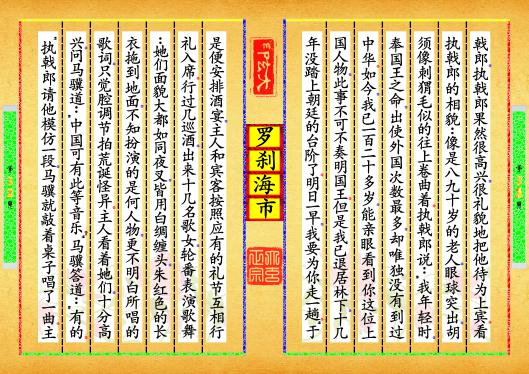 戟郎执戟郎果然很高兴很礼貌地把他待为上宾看
执戟郎的相貌：像是八九十岁的老人眼球突出胡
须像刺猬毛似的往上卷曲着执戟郎说：，我年轻时
奉国王之命出使外国次数最多却唯独没有到过
中华如今我已一百二十多岁能亲眼看到你这位上
国人物此事不可不奏明国王但是我已退居林下十几
年没踏上朝廷的台阶了明日一早我要为你走一趟于
罗刹海市
是便安排酒宴主人和宾客按照应有的礼节互相行
礼入席行过几巡酒出来十几名歌女轮番表演歌舞
：她们面貌大都如同夜叉皆用白绸缠头朱红色的长
衣拖到地面不知扮演的是何人物更不明白所唱的
歌词只觉腔调节拍荒诞怪异主人看着她们十分高
兴问马骥道：，中国可有此等音乐，马骥答道：，有的
，执戟郎请他模仿一段马骥就敲着桌子唱了一曲主